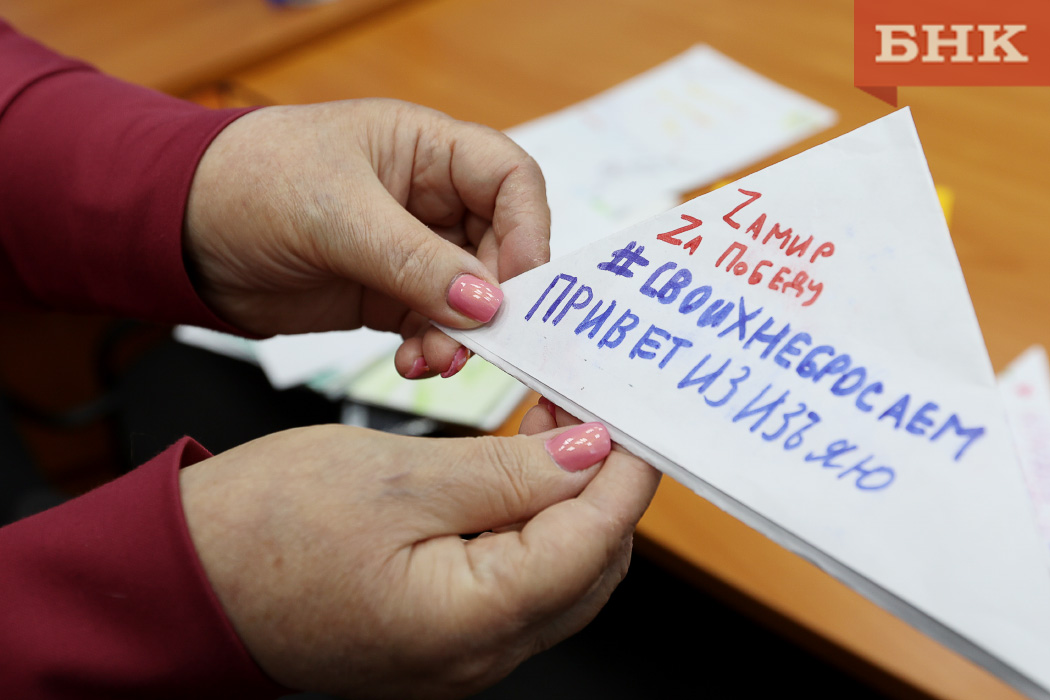 БНК
ZАМИР
ZА ПОБЕДУ
#СВОИХНЕБРОСАЕМ
ПРИВЕТ ИЗ ИЗЪЯЮ